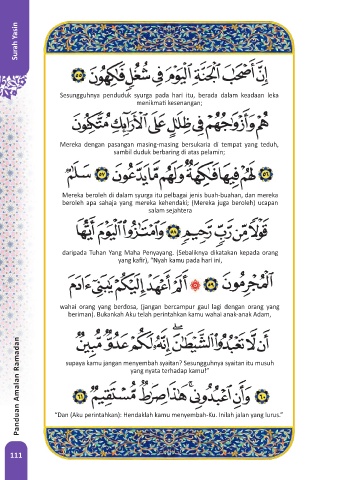 Surah Yasin
إِنَّ أَصْحَٰبَ ٱلْجَنَّةِ ٱلْيَوْمَ فِى شُغُلٍ فَٰكِهُونَ ٥٥
Sesungguhnya penduduk syurga pada hari itu, berada dalam keadaan leka
menikmati kesenangan;
هُمْ وَأَزْوَٰجُهُمْ فِى ظِلَٰلٍ عَلَى ٱلْأَرَآئِكِ مُتَّكِـُٔونَ
Mereka dengan pasangan masing-masing bersukaria di tempat yang teduh,
sambil duduk berbaring di atas pelamin;
٥٦ لَهُمْ فِيهَا فَٰكِهَةٌ وَلَهُم مَّا يَدَّعُونَ ٥٧ سَلَٰمٌ
Mereka beroleh di dalam syurga itu pelbagai jenis buah-buahan, dan mereka
beroleh apa sahaja yang mereka kehendaki; (Mereka juga beroleh) ucapan
salam sejahtera
قَوْلًا مِّن رَّبٍّ رَّحِيمٍ ٥٨ وَٱمْتَٰزُوا۟ ٱلْيَوْمَ أَيُّهَا
daripada Tuhan Yang Maha Penyayang. (Sebaliknya dikatakan kepada orang
yang kafir), "Nyah kamu pada hari ini,
ٱلْمُجْرِمُونَ ٥٩ ۞ أَلَمْ أَعْهَدْ إِلَيْكُمْ يَٰبَنِىٓ ءَادَمَ
wahai orang yang berdosa, (jangan bercampur gaul lagi dengan orang yang
beriman). Bukankah Aku telah perintahkan kamu wahai anak-anak Adam,
أَن لَّا تَعْبُدُوا۟ ٱلشَّيْطَٰنَ ۖ إِنَّهُۥ لَكُمْ عَدُوٌّ مُّبِينٌ
supaya kamu jangan menyembah syaitan? Sesungguhnya syaitan itu musuh
yang nyata terhadap kamu!"
٦٠ وَأَنِ ٱعْبُدُونِى ۚ هَٰذَا صِرَٰطٌ مُّسْتَقِيمٌ ٦١
"Dan (Aku perintahkan): Hendaklah kamu menyembah-Ku. Inilah jalan yang lurus."
Panduan Amalan Ramadan
111